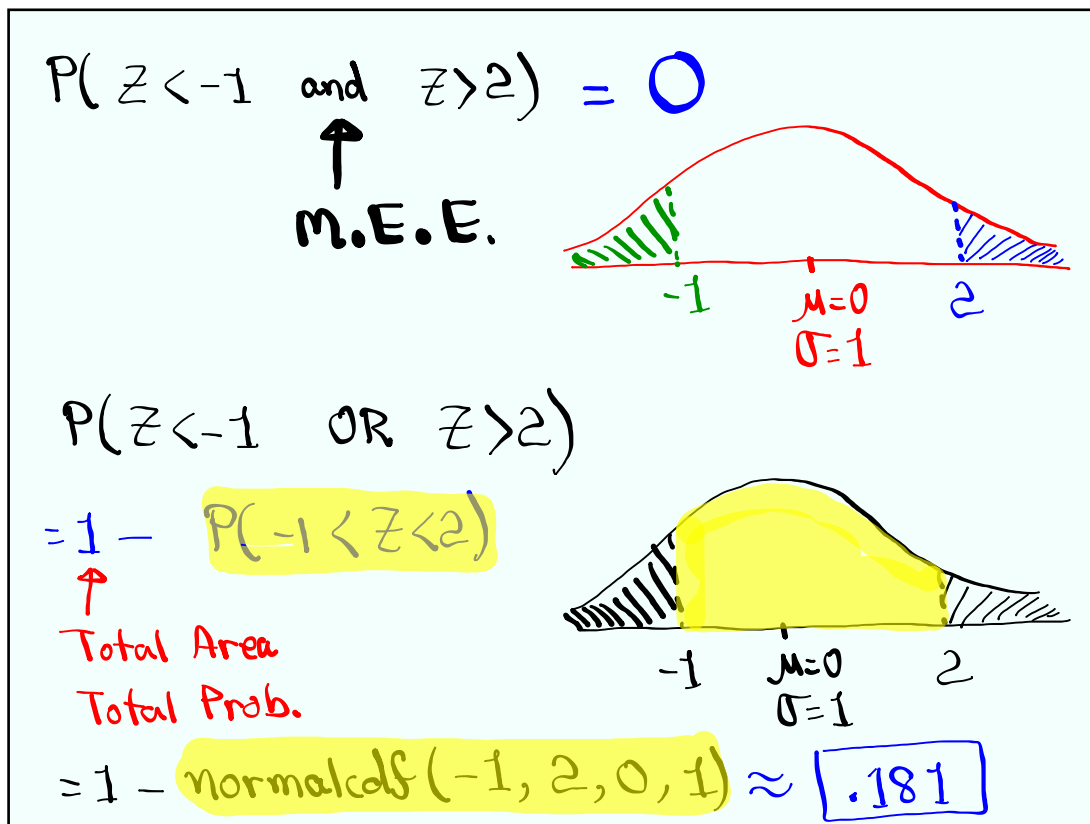 P( Z < -1 and Z > 2) = 0
M.E.E.
-1 μ=0 2
σ=1
P(Z<-1 OR Z>2)
= 1 - P(-1 < Z < 2)
Total Area
Total Prob.
-1 μ=0 2
σ=1
= 1 - normalcdf(-1, 2, 0, 1) ≈ .181